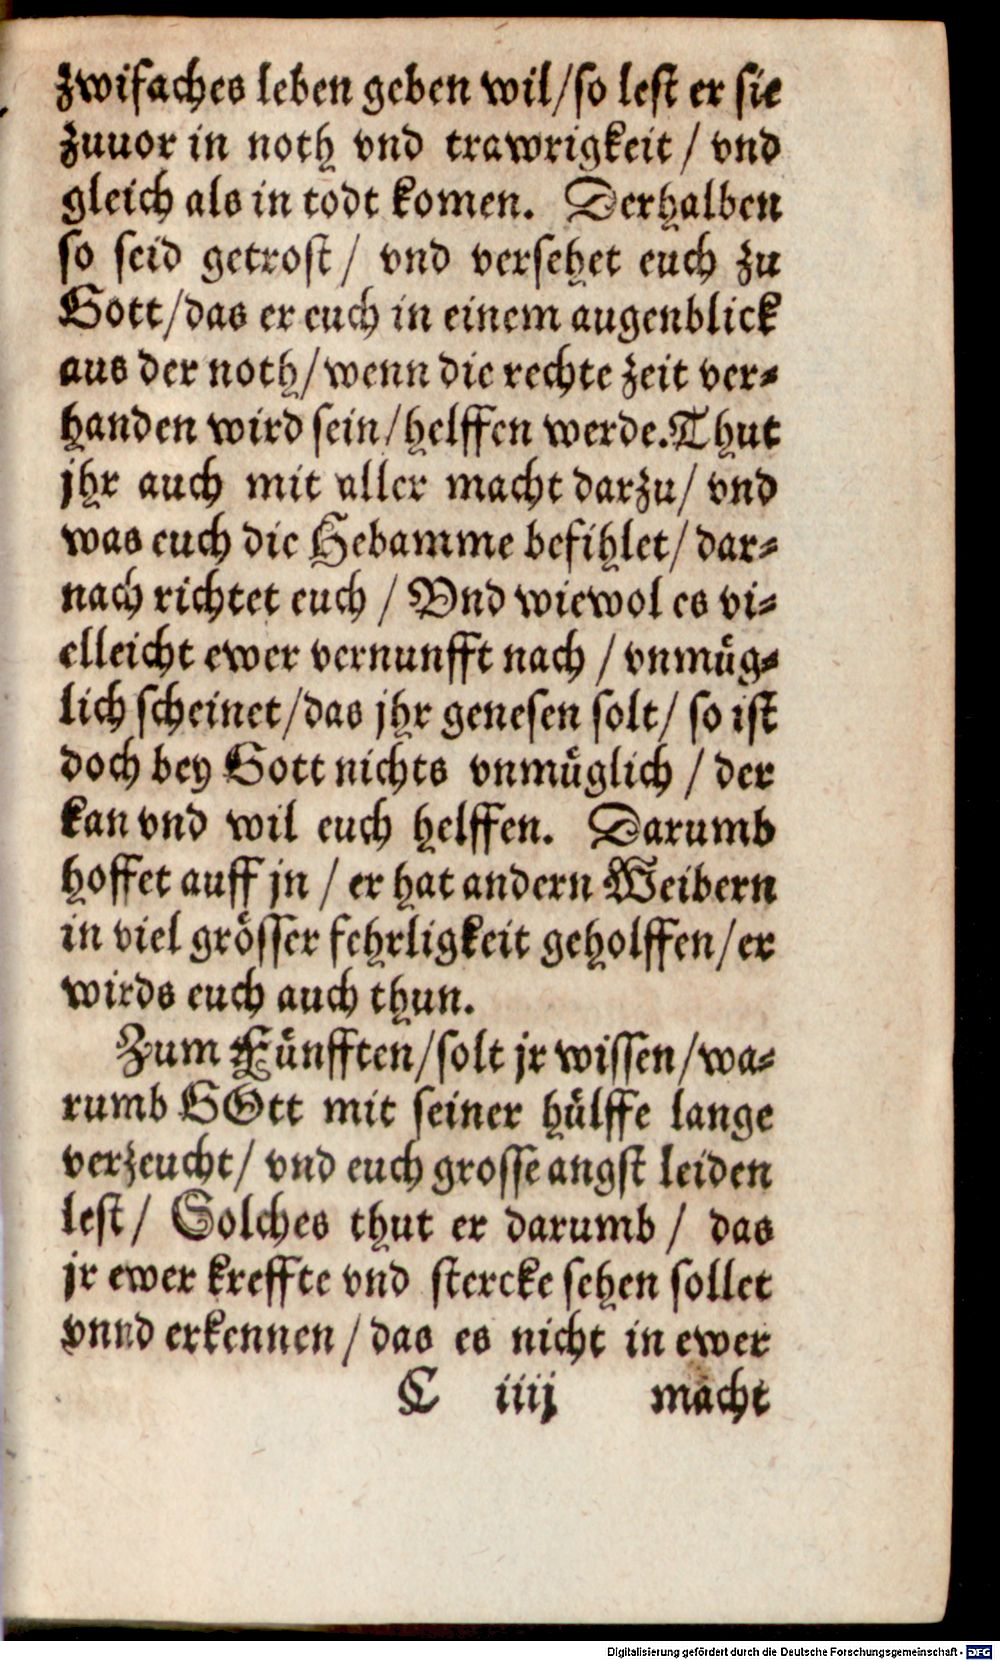 zwifaches leben geben wil/so lest er sie
zuuor in noth vnd trawrigkeit / vnd
gleich als in todt komen. Derhalben
so seid getrost / vnd versehet euch zu
Gott/das er euch in einem augenblick
aus der noth/wenn die rechte zeit ver⸗
handen wird sein/helffen werde. Thut
jhr auch mit aller macht darzu/ vnd
was euch die Hebamme befihlet/ dar⸗
nach richtet euch / Vnd wiewol es vi⸗
elleicht ewer vernunfft nach / vnmüg⸗
lich scheinet/das jhr genesen solt/ so ist
doch bey Gott nichts vnmüglich / der
kan vnd wil euch helffen. Darumb
hoffet auff jn / er hat andern Weibern
in viel grösser fehrligkeit geholffen/er
wirds euch auch thun.
Zum Fünfften/solt jr wissen/wa⸗
rumb GOtt mit seiner hülffe lange
verzeucht/ vnd euch grosse angst leiden
lest/ Solches thut er darumb / das
jr ewer kreffte vnd stercke sehen sollet
vnnd erkennen/das es nicht in ewer
C iiij macht
Digitalisierung gefördert durch die Deutsche Forschungsgemeinschaft - DFG